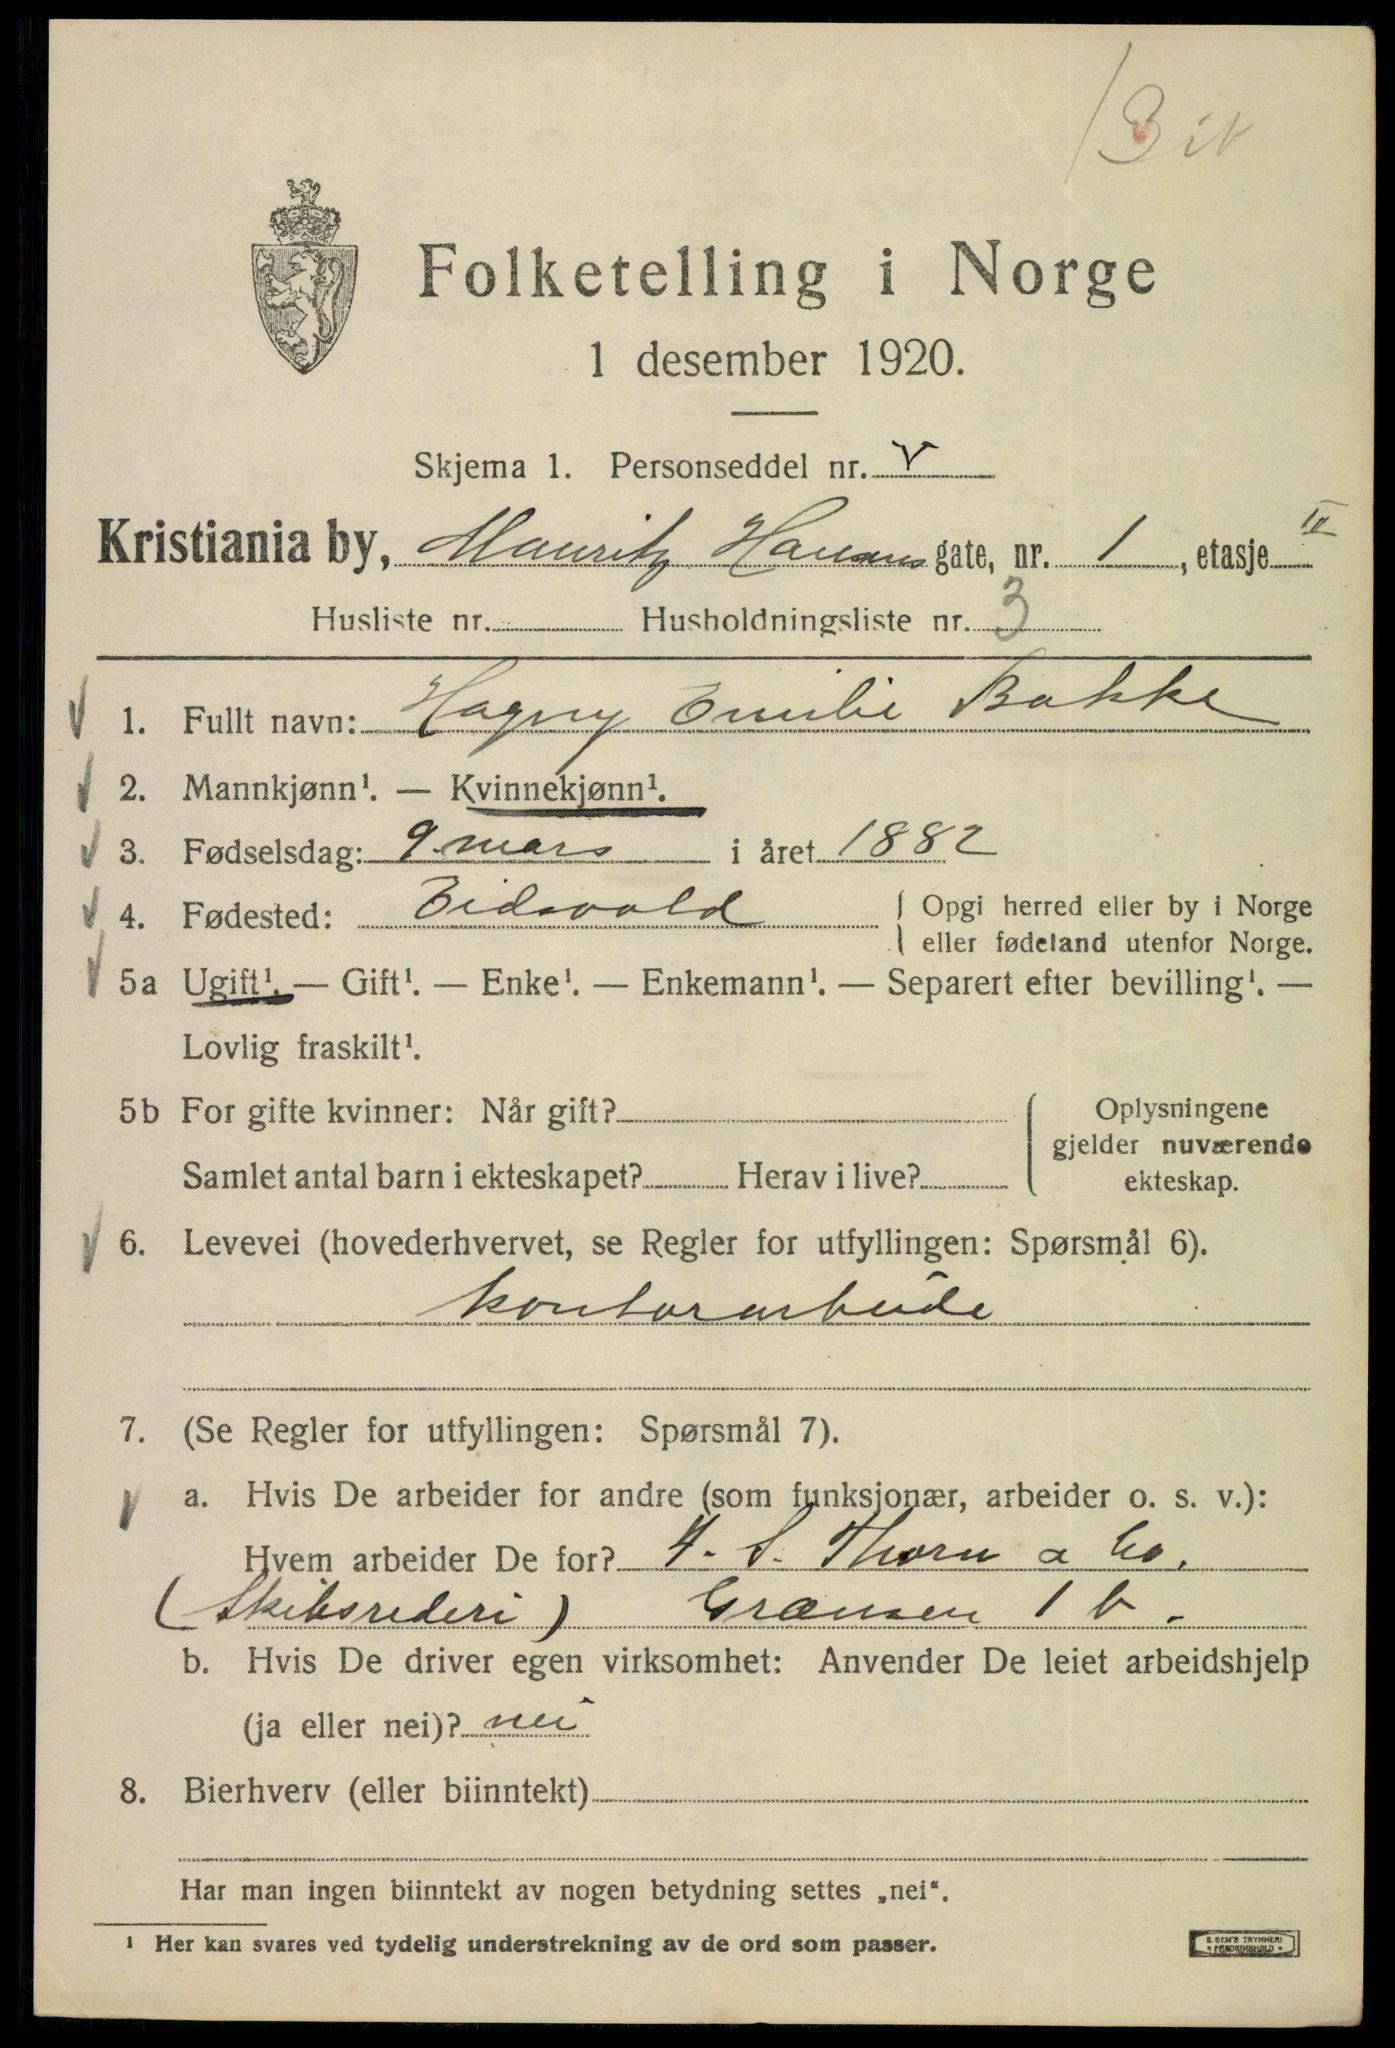 Folketelling i Norge
1 desember 1920.
Skjema 1. Personseddel nr. V
Kristiania by, Mauritz Hansens gate, nr. 1, etasje II
Husliste nr. Husholdningsliste nr. 3
1. Fullt navn: Hagny Emilie Bakke
2. Mannkjønn¹. — Kvinnekjønn¹.
3. Fødselsdag: 9. mars i året 1882
4. Fødested: Eidsvold { Opgi herred eller by i Norge
eller fødeland utenfor Norge.
5a Ugift¹. — Gift¹. — Enke¹. — Enkemann¹. — Separert efter bevilling¹. —
Lovlig fraskilt¹.
5b For gifte kvinner: Når gift? { Oplysningene
gjelder nuværende
Samlet antal barn i ekteskapet? Herav i live? ekteskap.
6. Levevei (hovederhvervet, se Regler for utfyllingen: Spørsmål 6).
kontorarbeide
7. (Se Regler for utfyllingen: Spørsmål 7).
a. Hvis De arbeider for andre (som funksjonær, arbeider o. s. v.):
Hvem arbeider De for? S. Thorn & Co.
(Skibsrederi) Grænsen 1 b.
b. Hvis De driver egen virksomhet: Anvender De leiet arbeidshjelp
(ja eller nei)? nei
8. Bierhverv (eller biinntekt)
Har man ingen biinntekt av nogen betydning settes „nei“.
¹ Her kan svares ved tydelig understrekning av de ord som passer.
E. SEM'S TRYKKERI
FREDRIKSHALD